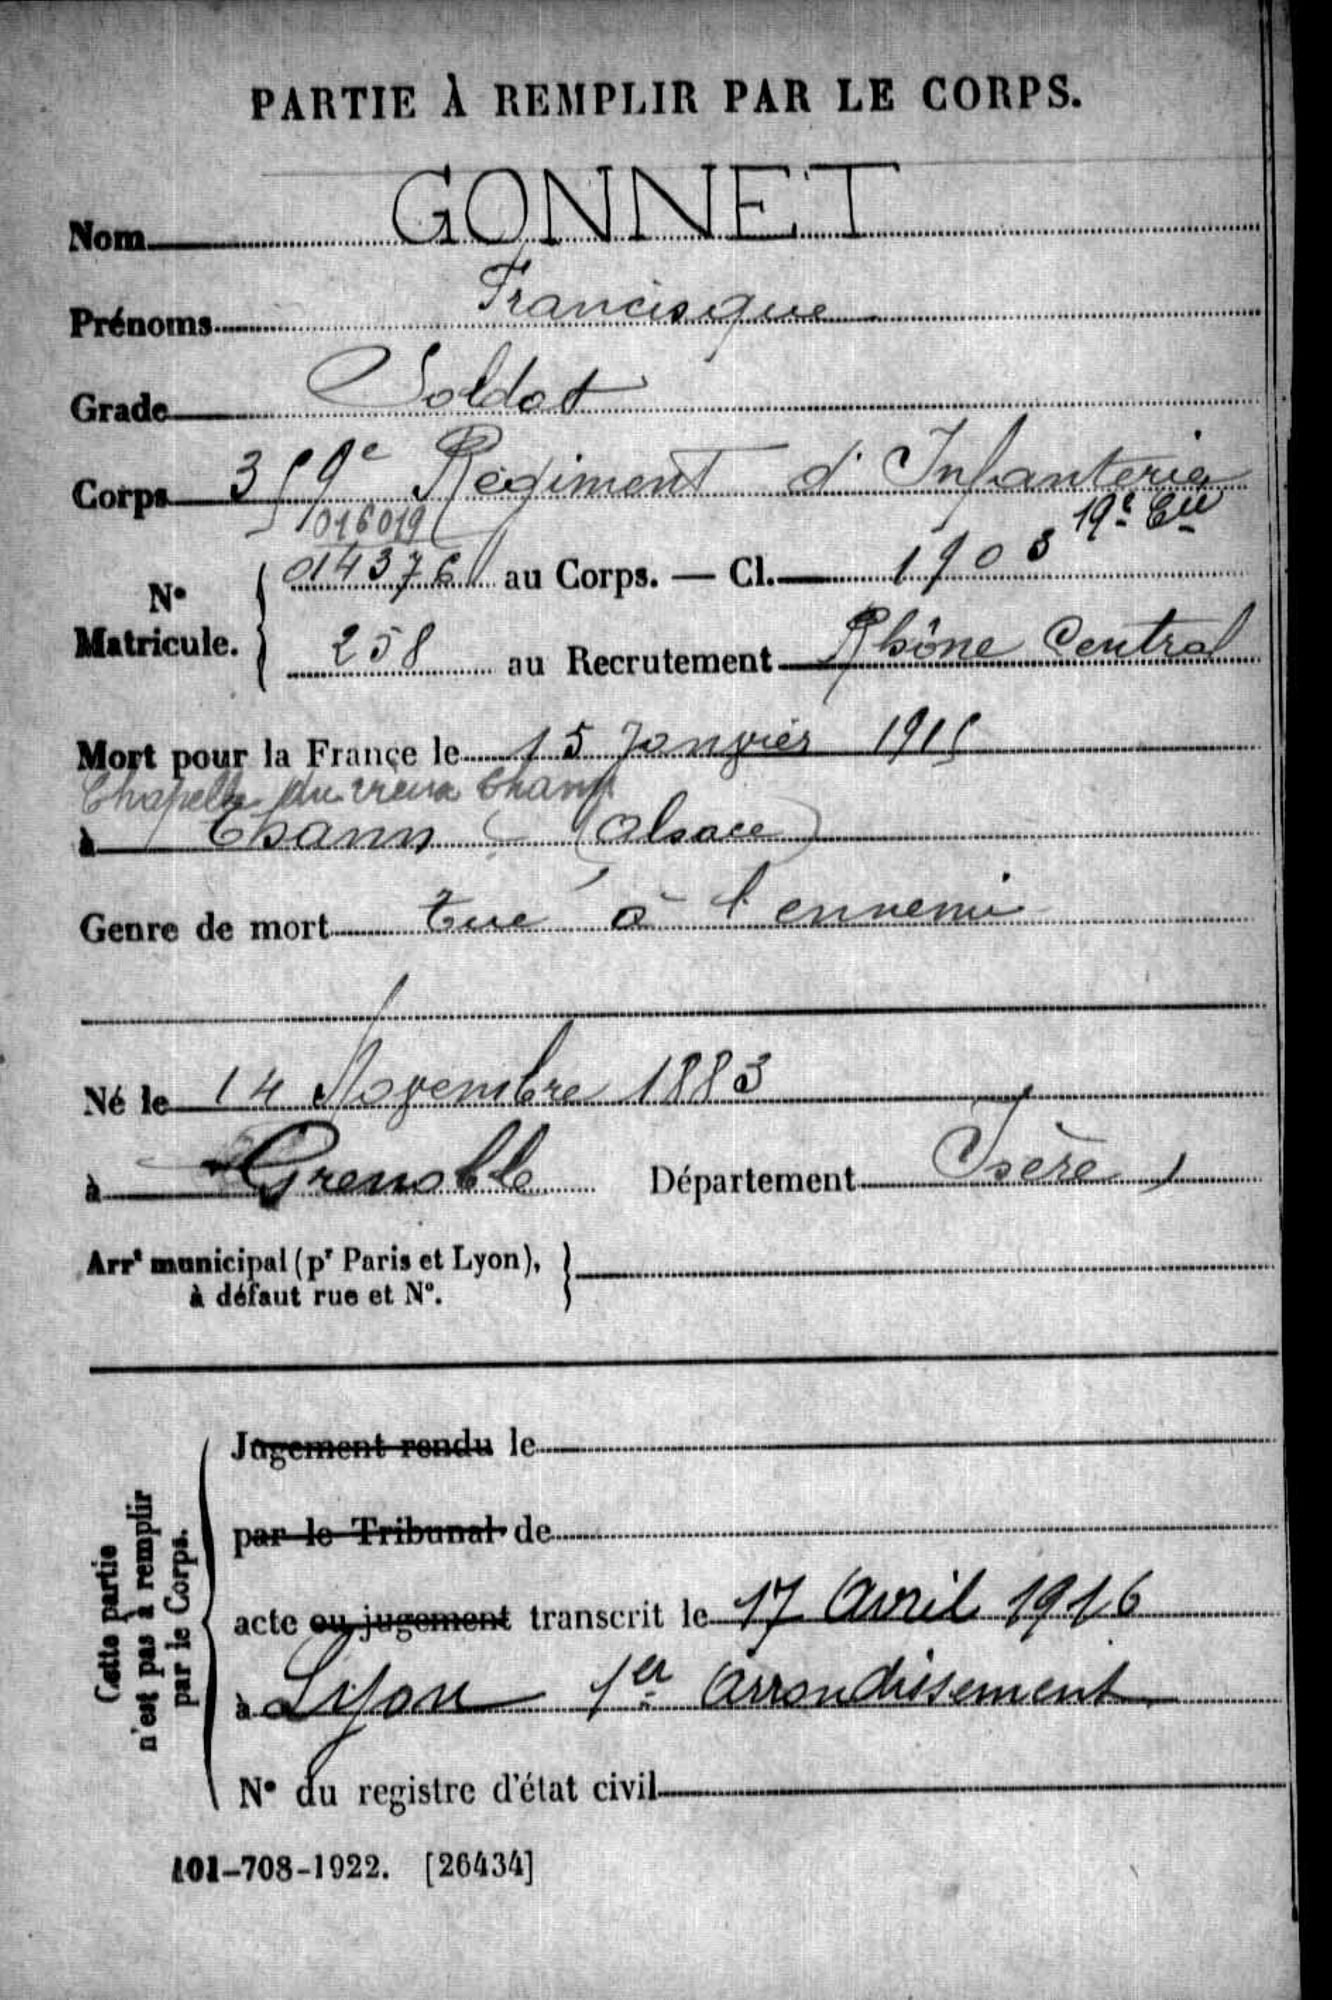 PARTIE À REMPLIR PAR LE CORPS.
Nom GONNET
Prénoms Francisque
Grade Soldat
Corps 359e Régiment d'Infanterie
016019 19e Cie
N° Matricule. 014376 au Corps. — Cl. 1903
258 au Recrutement Rhône Central
Mort pour la France le 15 Janvier 1915
Chapelle du vieux
à Thann (Alsace)
Genre de mort tué à l'ennemi
Né le 14 Novembre 1883
à Grenoble Département Isère
Arrt municipal (pr Paris et Lyon),
à défaut rue et N°.
Cette partie
n'est pas à remplir
par le Corps.
Jugement rendu le
par le Tribunal de
acte ou jugement transcrit le 17 Avril 1916
à Lyon 1er Arrondissement
N° du registre d'état civil
101-708-1922. [26434]